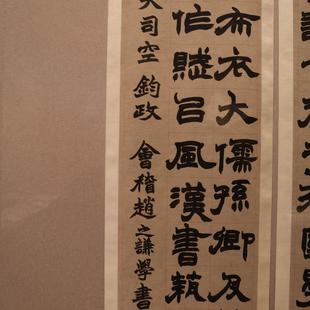 布衣大儒孫卿及
作賦㠯風漢書埶
大司空 鈞政 會稽趙之謙學書